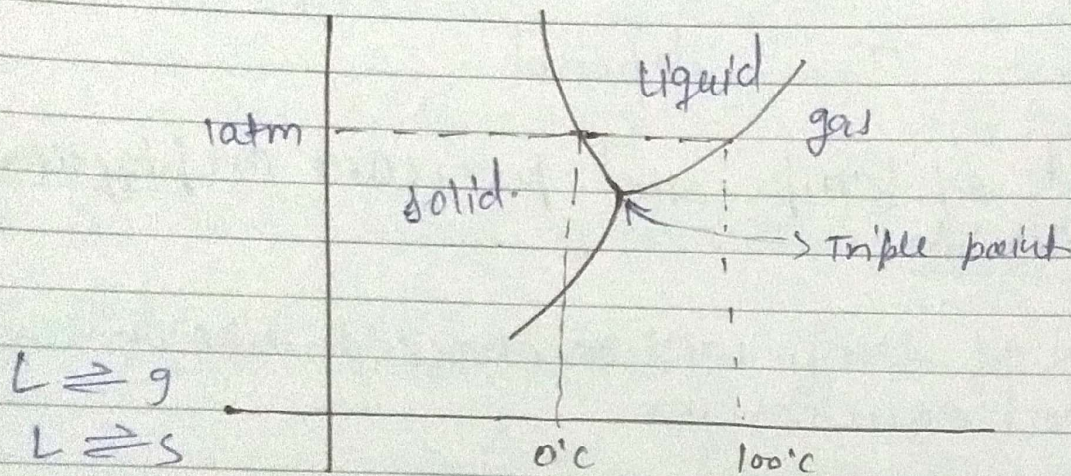 Liquid
1atm
gas
solid.
Triple point
L ⇌ g
L ⇌ s
0°C
100°C